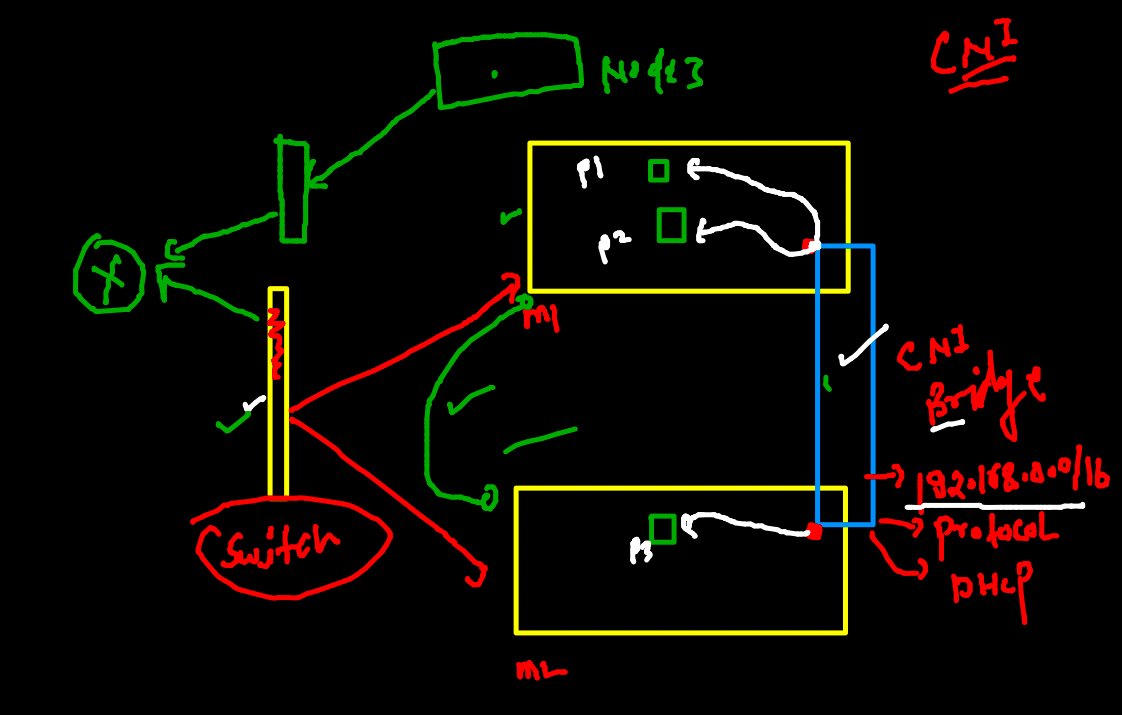 CNI
Node3
p1
p2
m1
CNI
Bridge
192.168.0.0/16
Protocol
DHCP
Switch
p3
m2